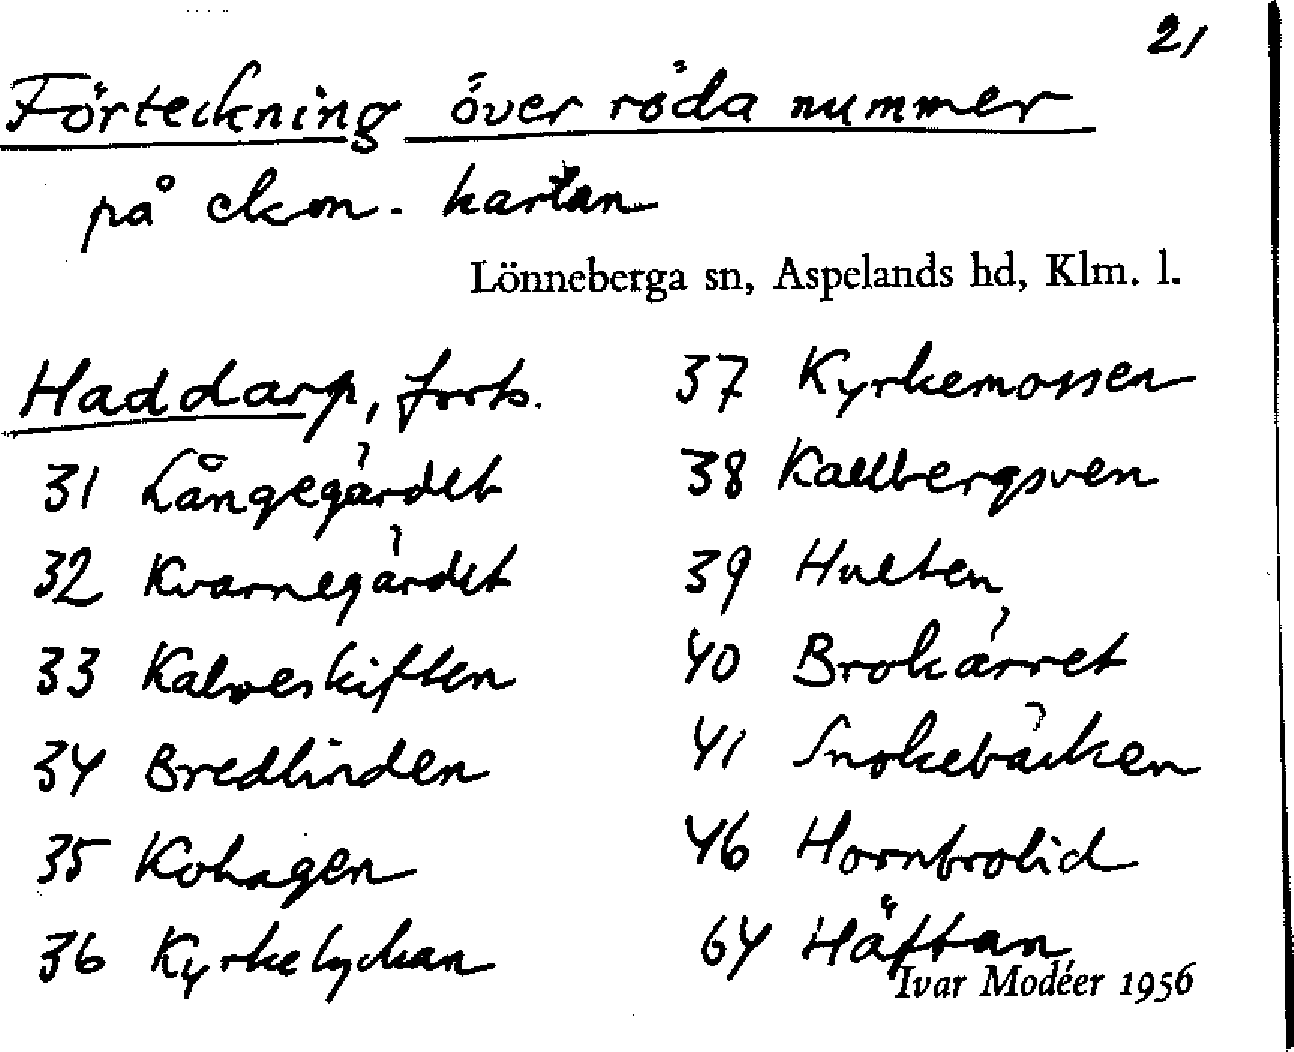 21
Förteckning över röda nummer
på ekon. kartan
Lönneberga sn, Aspelands hd, Klm. l.
Haddarp, forts.
31 Långegärdet
32 Kvarnegärdet
33 Kalveskiften
34 Bredlinden
35 Kohagen
36 Kyrkelyckan
37 Kyrkemossen
38 Kallbergsven
39 Hulten
40 Brokärret
41 Snokebäcken
46 Hornbrolid
64 Häftan
Ivar Modéer 1956